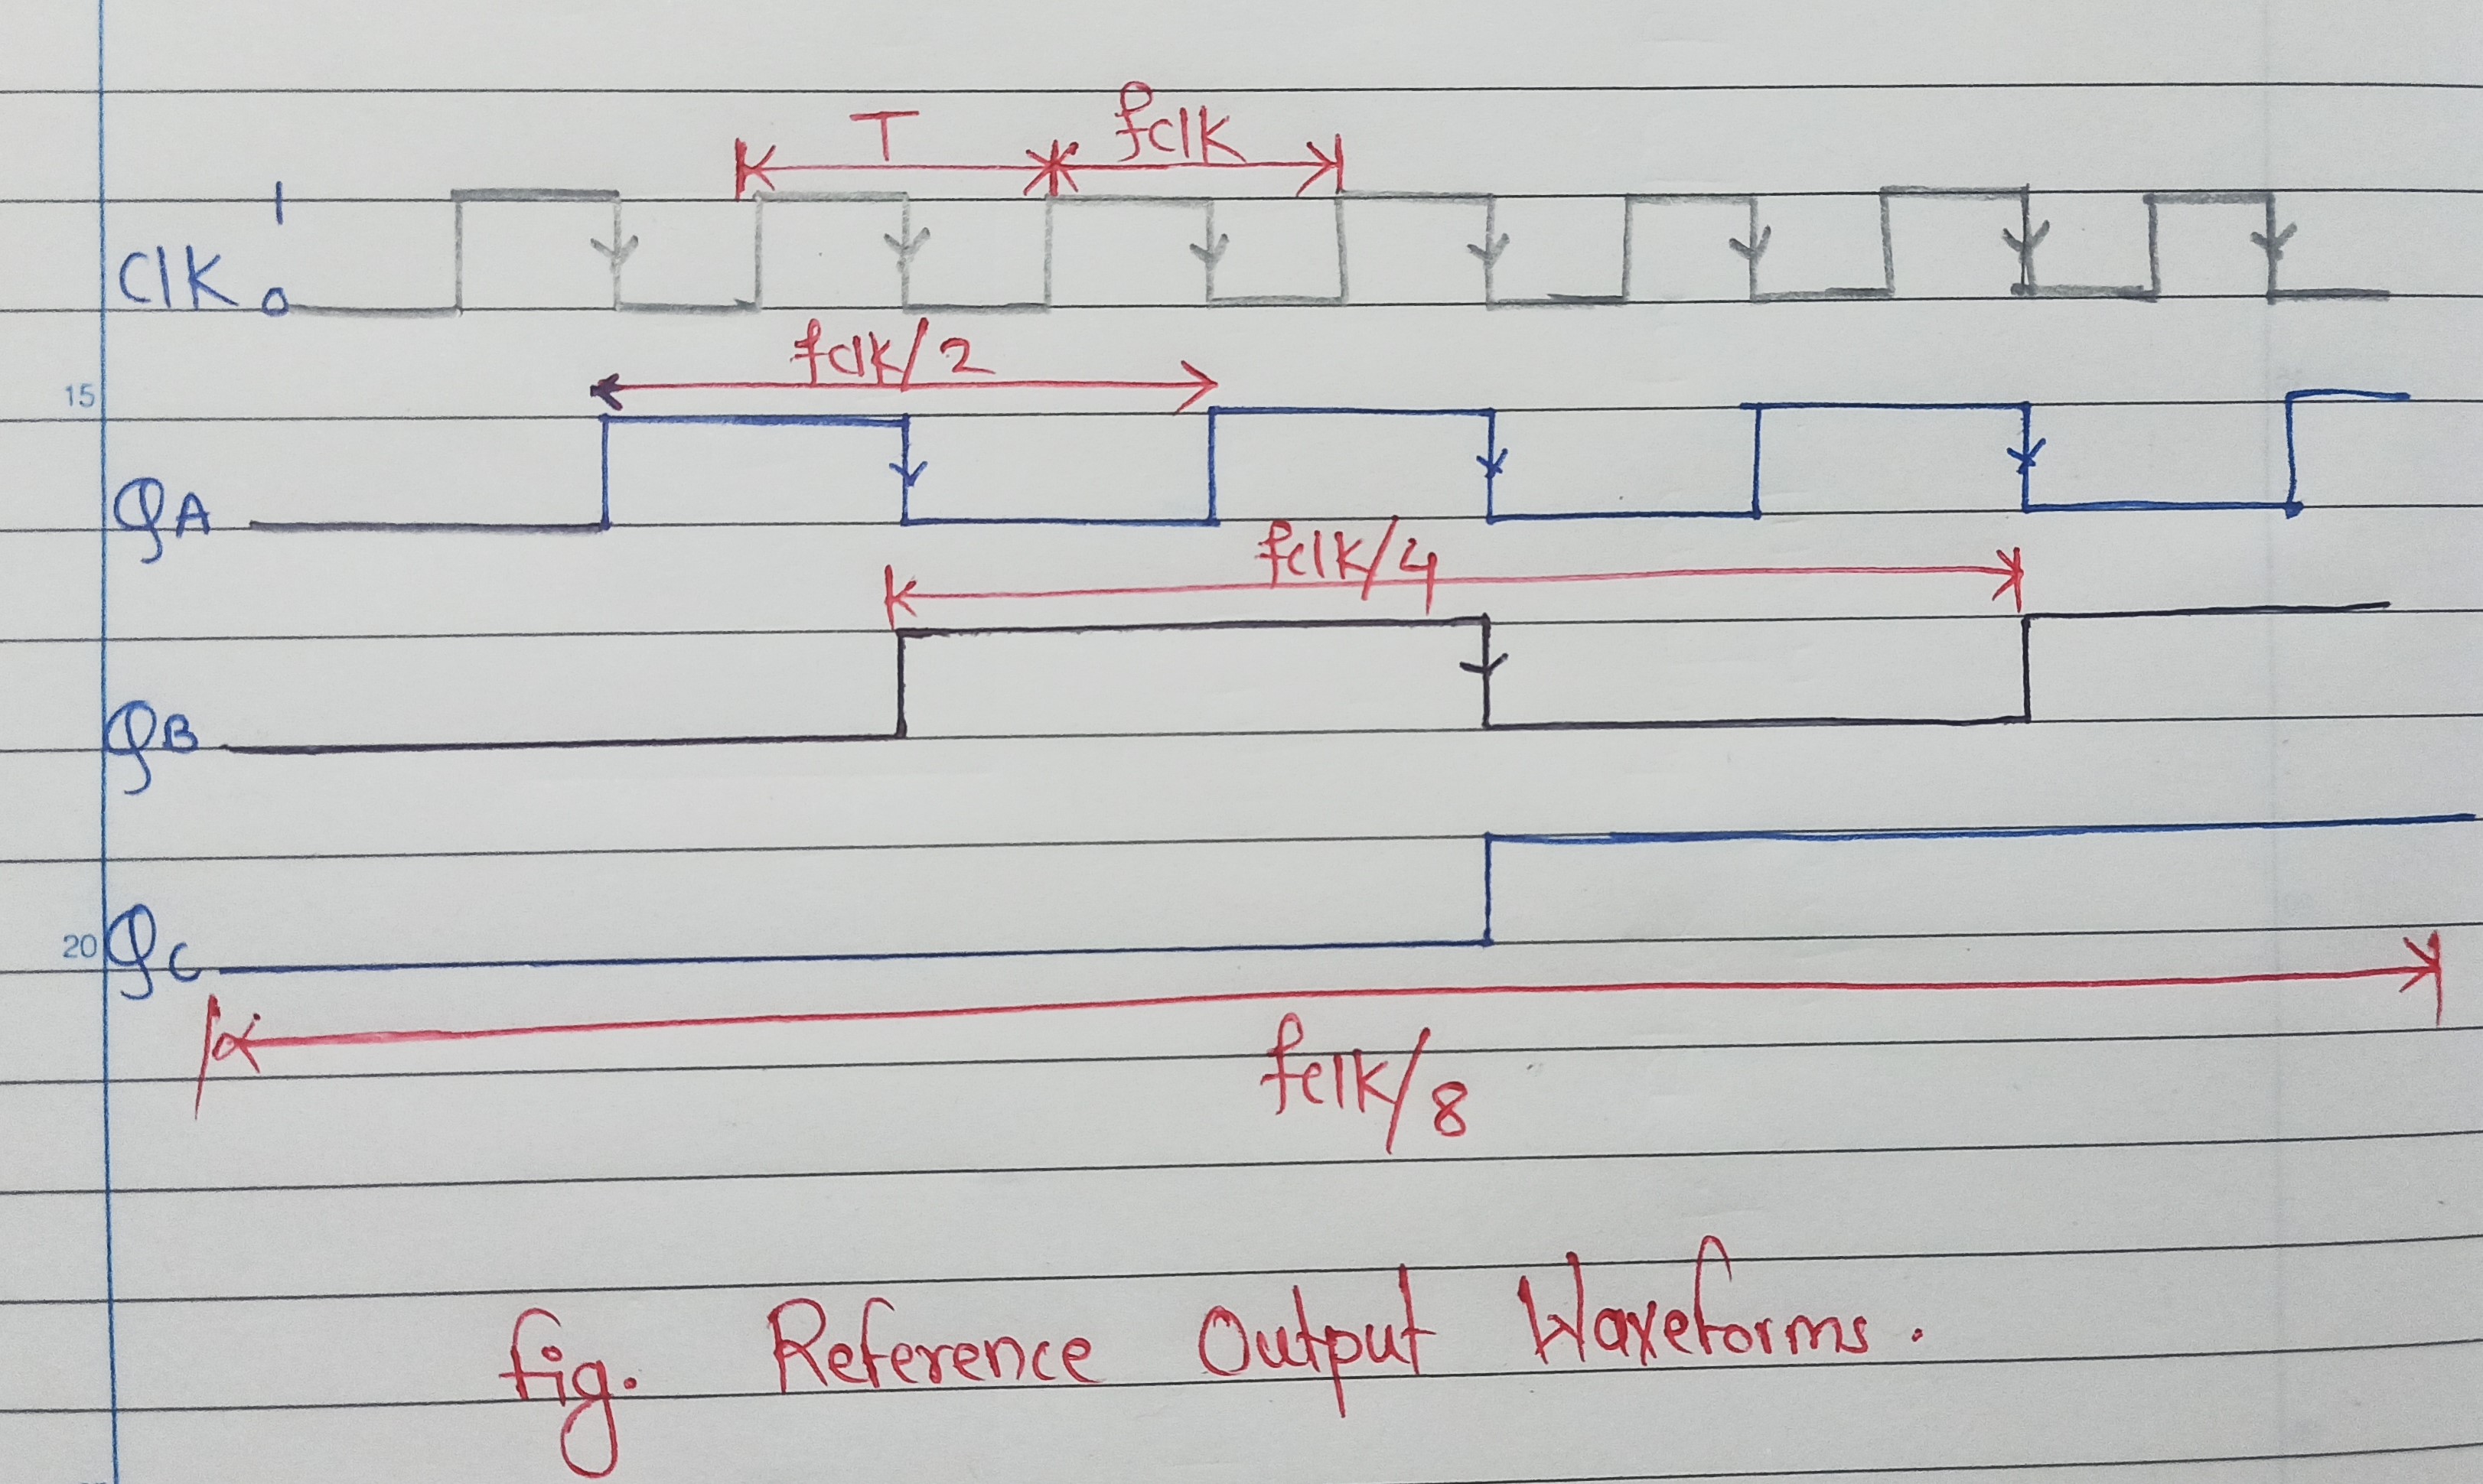 T fclk
1
Clk 0
fclk/2
15
QA
fclk/4
QB
20 QC
fclk/8
fig. Reference Output Waveforms.